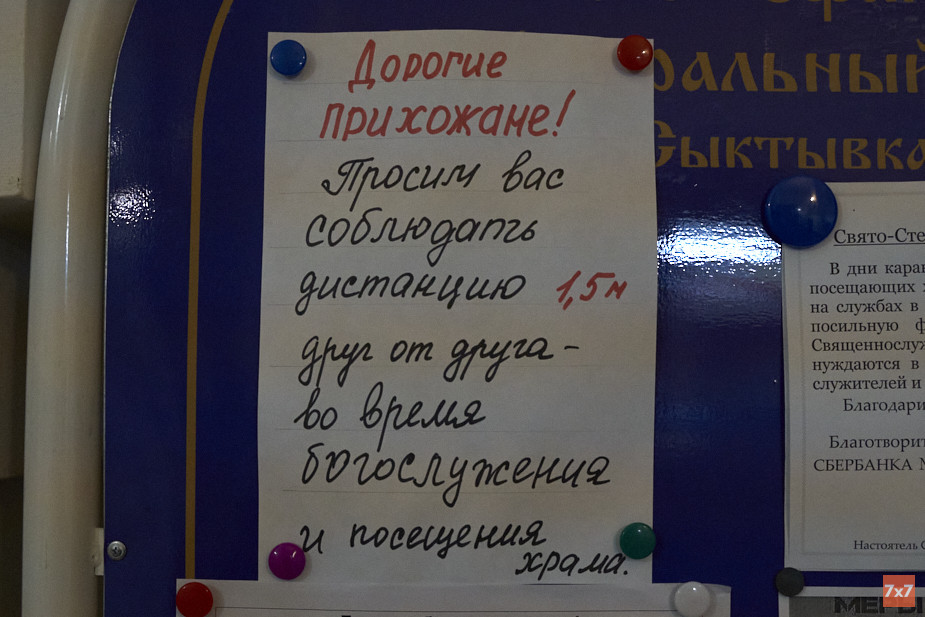 Дорогие
прихожане!
Просим вас
соблюдать
дистанцию 1,5 м
друг от друга –
во время
богослужения
и посещения
храма.
ральный
Сыктывка
Свято-Сте
В дни каран
посещающих
на службах в
посильную ф
Священнослуж
нуждаются в
служителей и
Благодари
Благотворит
СБЕРБАНКА
Настоятель С
7x7